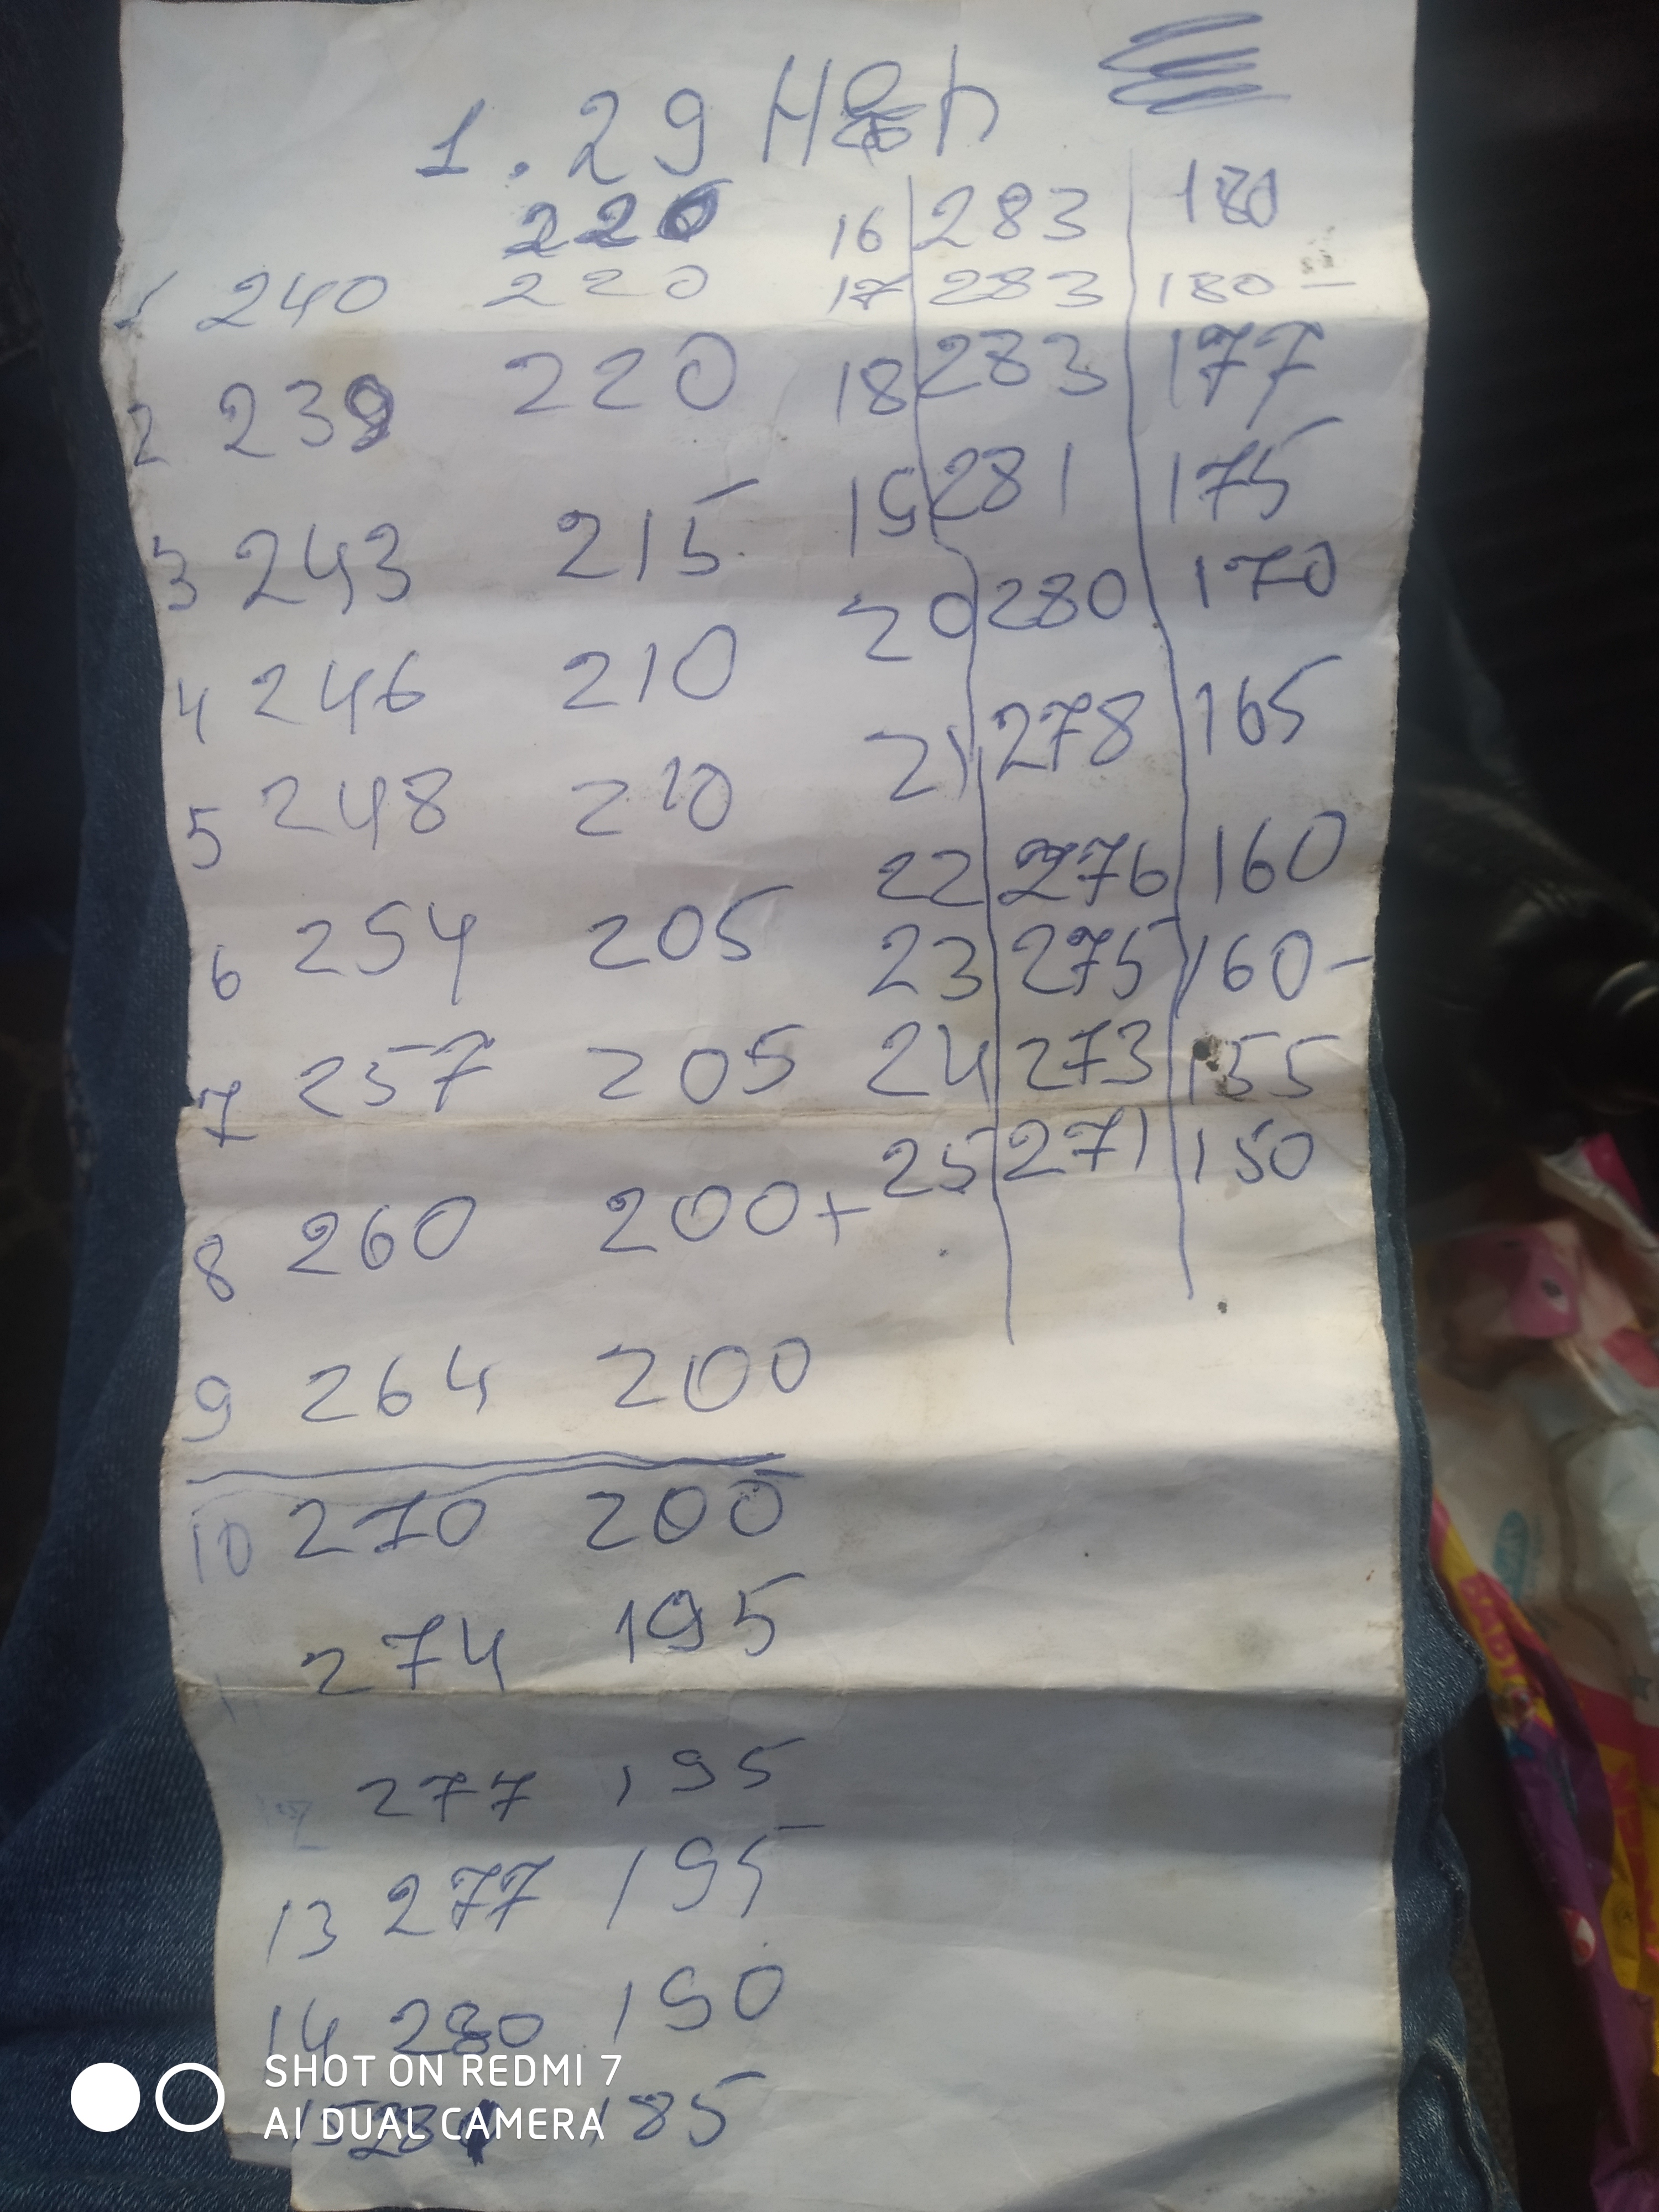 1.29
220
1 240 220
2 239 220
3 243 215
4 246 210
5 248 210
6 254 205
7 257 205
8 260 200+
9 264 200
10 270 200
274 195
12 277 195
13 277 195
14 280 190
15 281 185
16 283 180
17 283 180-
18 283 177
19 281 175
20 280 170
21 278 165
22 276 160
23 275 160-
24 273 155
25 271 150
SHOT ON REDMI 7
AI DUAL CAMERA